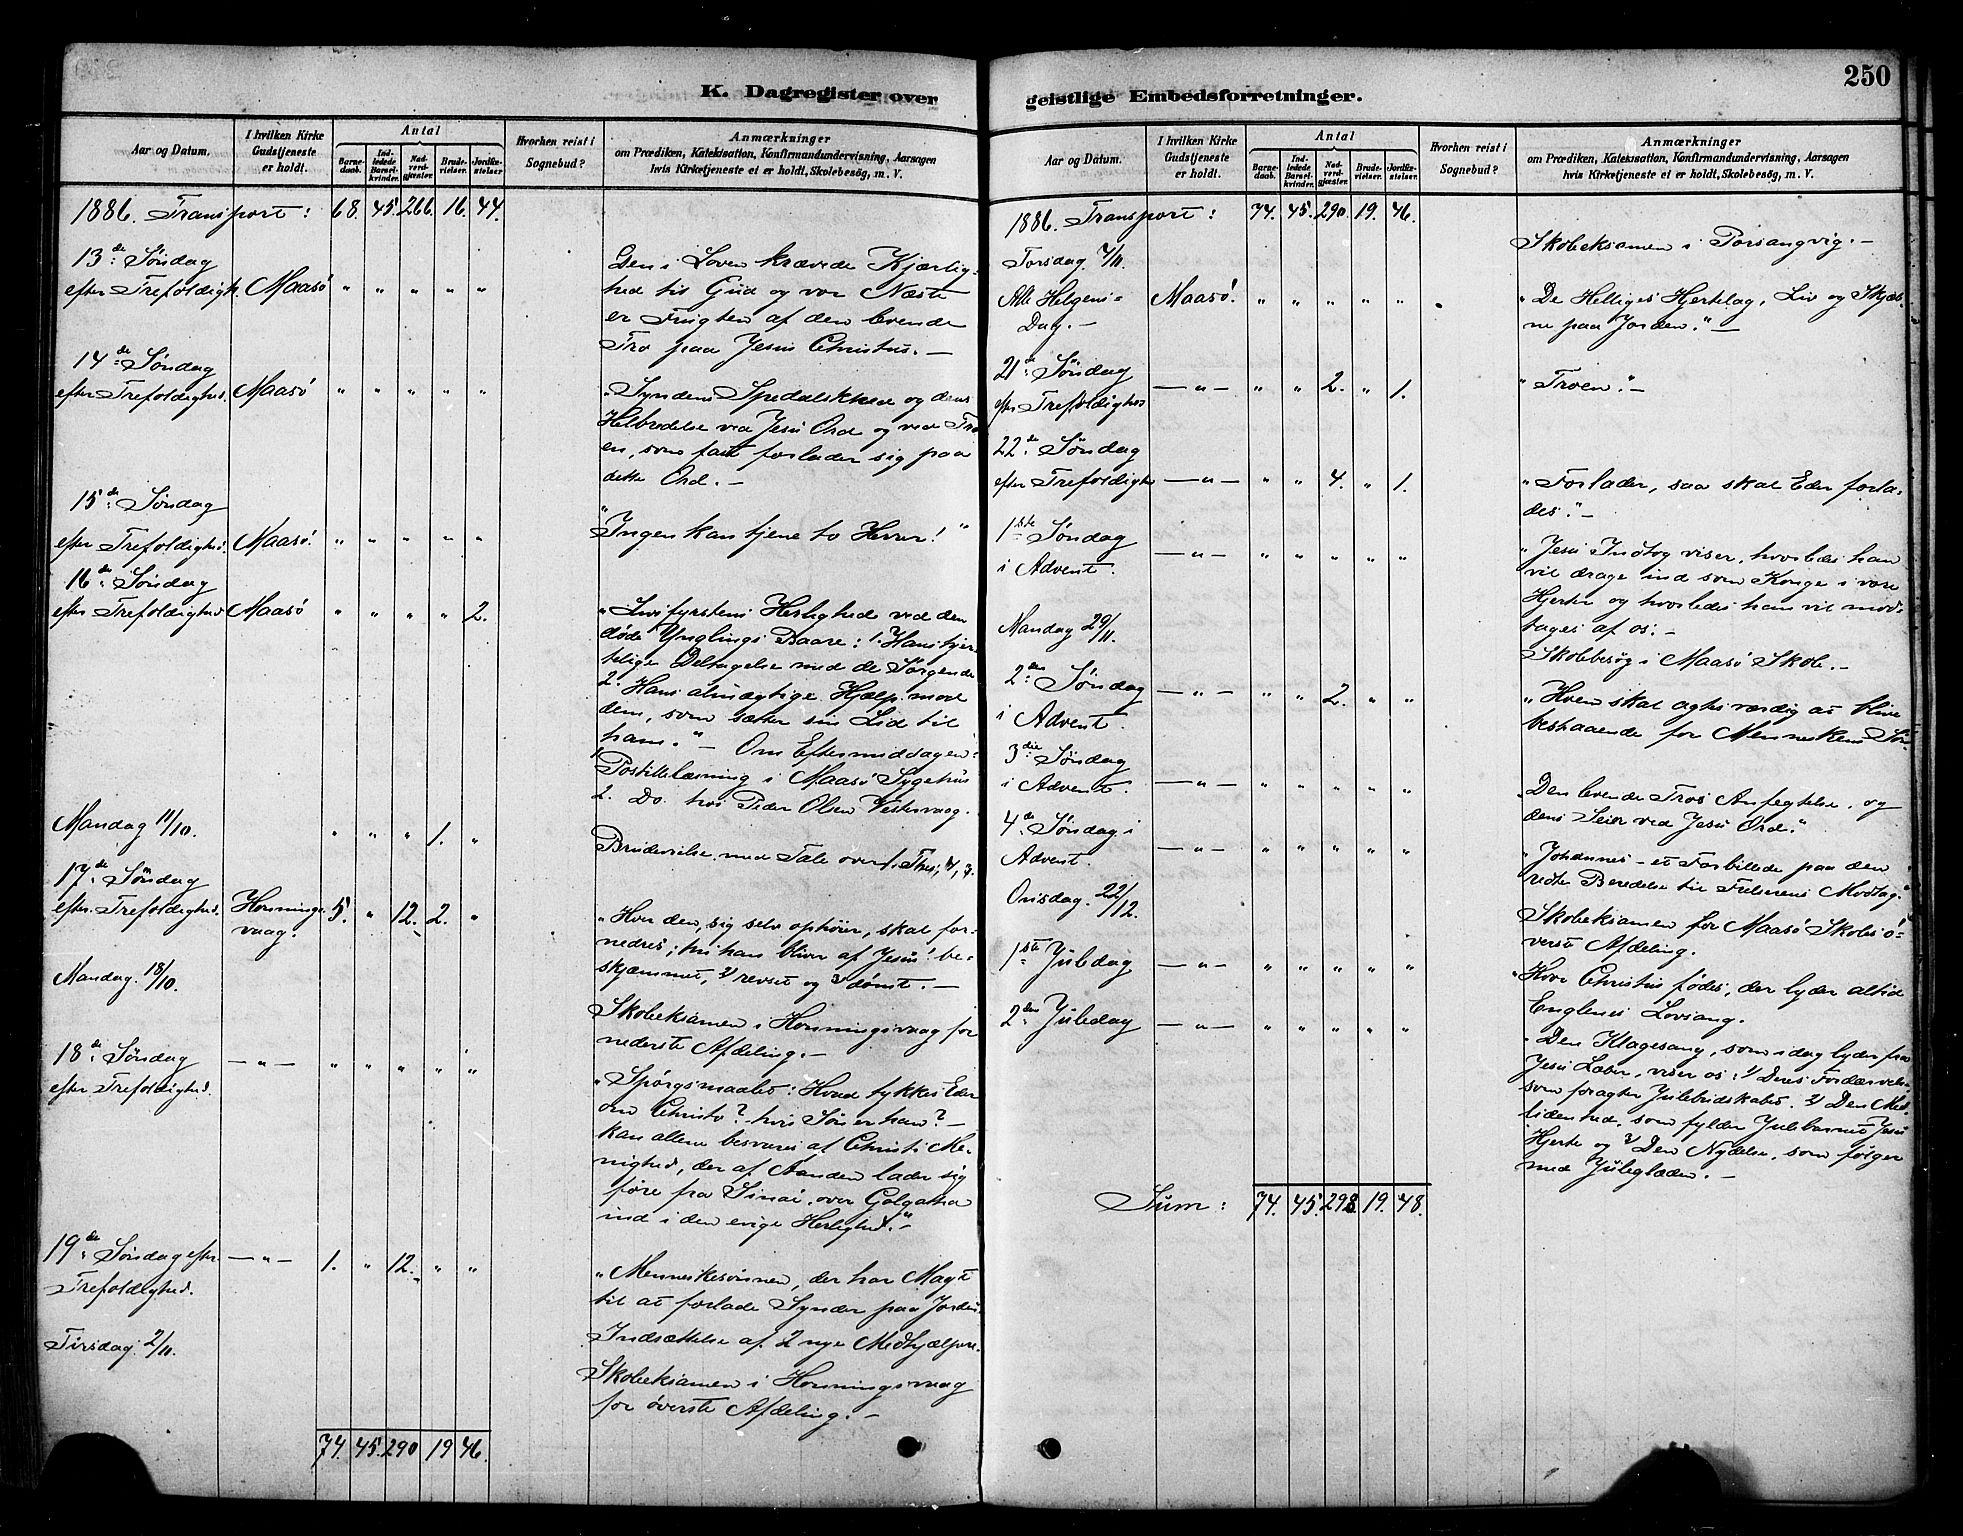 250
K. Dagregister over
Aar og Datum.
I hvilken Kirke Gudstjeneste er holdt.
Antal
Barnedaab.
Indledede Barselkvinder.
Nadverdgjæster.
Brudevielser.
Jordfæstelser.
Hvorhen reist i Sognebud?
Anmærkninger
om Prædiken, Katekisation, Konfirmandundervisning, Aarsagen
hvis Kirketjeneste ei er holdt, Skolebesög, m. V.
1886. Transport: 68. 45. 266. 16. 44.
13de Søndag
efter Trefoldigh. Maasö " " " " "
Den i Loven krævede Kjærlig-
hed til Gud og vor Næste
er Frugten af den levende
Tro paa Jesus Christus. -
14de Søndag
efter Trefoldighed. Maasö " " " " "
"Syndens Spedalskhed og dens
Helbredelse ved Jesu Ord og ved Tro
en, som fast forlader sig paa
dette Ord. -
15de Søndag
efter Trefoldighed. Maasö. " " " " "
"Ingen kan tjene to Herrer!"
16de Søndag
efter Trefoldighed Maasö " " " " 2.
"Livsfyrstens Herlighed ved den
døde Ynglings Baare: 1. Hans hjer-
telige Deltagelse med de Sørgende
2. Hans almægtige Hjælp mod
dem, som sætter sin Lid til
ham." - Om Eftermiddagen:
1. Postillelæsning i Maasö Sygehus
2. Do. hos Peder Olsen Vestervaag.
Mandag 11/10. " " " 1. "
Brudevielse med Tale over 1. Thes. 4, 7.
17de Søndag
efter Trefoldighed. Honnings-
vaag. 5. " 12. 2. "
"Hver den, sig selv ophøier, skal for-
nedres; thi han bliver af Jesus 1 be-
skjæmmet, 2 revset og 3 dømt. -
Mandag 18/10.
Skoleeksamen i Honningsvaag for
nederste Afdeling. -
18de Søndag — " — " " " " "
efter Trefoldighed.
"Spørgsmaalet: Hvad tykkes Eder
om Christo? hvis Søn er han? -
kan allene besvares af Christi Me-
nighed, der af Aanden lader sig
føre fra Sinai, over Golgatha
ind i den evige Herlighed." -
19de Søndag efter — " — 1. " 12. " "
Trefoldighed.
"Menneskesønnen, der har Magt
til at forlade Synder paa Jorden.
Indsættelse af 2 nye Medhjælpere.
Tirsdag 2/11.
Skoleeksamen i Honningsvaag
for øverste Afdeling. -
74. 45. 290 19 46.
geistlige Embedsforretninger.
Aar og Datum.
I hvilken Kirke Gudstjeneste er holdt.
Antal
Barnedaab.
Indledede Barselkvinder.
Nadverdgjæster.
Brudevielser.
Jordfæstelser.
Hvorhen reist i Sognebud?
Anmærkninger
om Prædiken, Katekisation, Konfirmandundervisning, Aarsagen
hvis Kirketjeneste ei er holdt, Skolebesög, m. V.
1886. Transport: 74. 45. 290. 19. 46.
Torsdag 4/11.
Skoleeksamen i Porsangvig. -
Alle Helgens-
Dag. - Maasö. " " " " "
"De Helliges Hjertelag, Liv og Skjæb-
ne paa Jorden." -
21de Søndag
efter Trefoldighed — " — " " 2. " 1.
"Troen." -
22de Søndag
efter Trefoldighed — " — " " 4. " 1.
"Forlader, saa skal Eder forla-
des." -
1ste Søndag
i Advent. — " — " " " " "
"Jesu Indtog viser, hvorledes han
vil drage ind som Konge i vore
Hjerter og hvorledes han vil mod-
tages af os. -
Mandag 29/11.
Skolebesøg i Maasö Skole. -
2den Søndag
i Advent. — " — " " 2. " "
"Hvem skal agtes værdig at blive
bestaaende for Menneskens Søn
3die Søndag
i Advent. — " — " " " " "
"Den levende Tros Anfegtelse, og
dens Seier ved Jesu Ord."
4de Søndag i
Advent. — " — " " " " "
"Johannes - et Forbillede paa den
rette Beredelse til Frelserens Modtag."
Onsdag 22/12.
Skoleeksamen for Maasö Skoles ö-
verste Afdeling.
1ste Juledag — " — " " " " "
"Hvor Christus fødes, der lyder altid
Englenes Lovsang.
2den Juledag — " — " " " " "
"Den Klagesang, som idag lyder fra
Jesu Læber, viser os: 1) Deres Fordærvelse
som foragter Julebudskabet. 2) Den Med-
lidenhed, som fylder Julebarnet Jesu
Hjerte og 3) Den Nydelse, som følger
med Juleglæden. -
Sum: 74. 45. 298 19. 48.